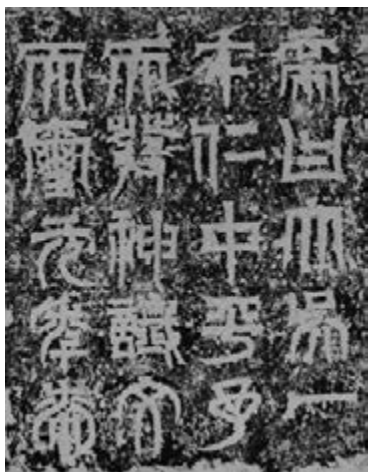 帝曰大吳一
仁中平予
天發神讖文
天璽元年